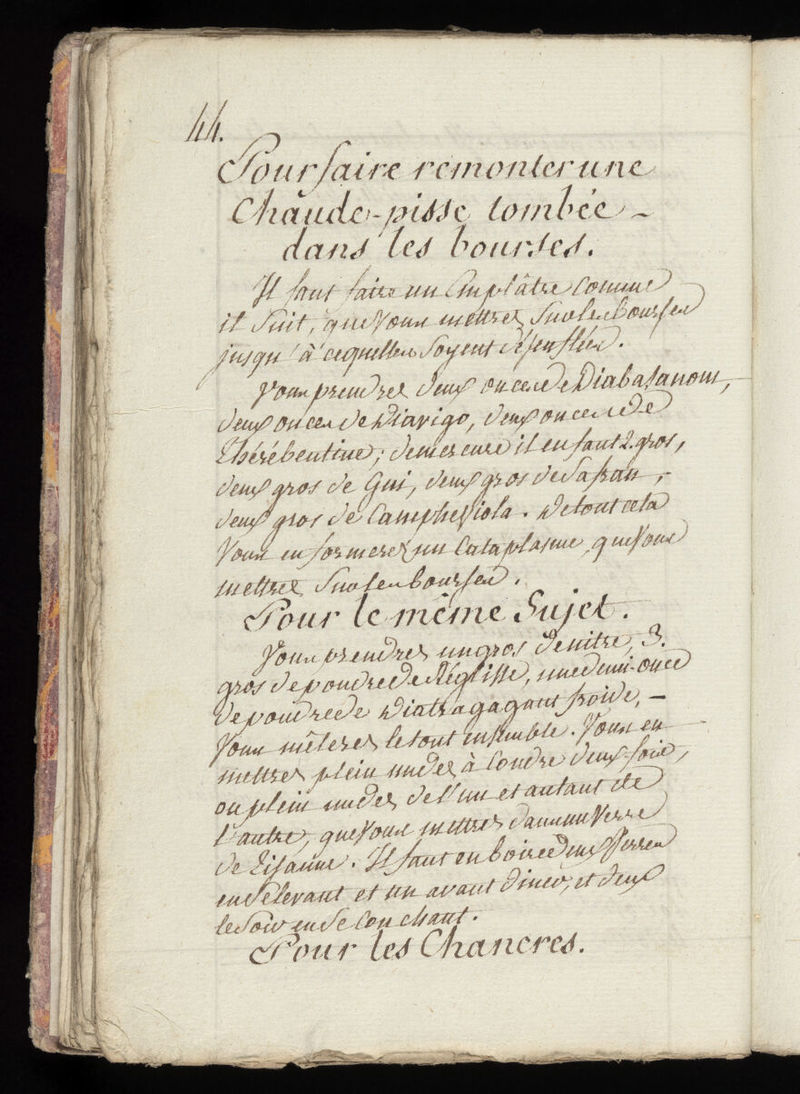 44.
Pour faire remonter une
Chaude-pisse tombée
dans les bourses.
Il faut faire un Emplâtre Comme
il Suit, que Vous mettrez Sur les Bourses
jusqu'à ce quelles Soyent désenflées.
Vous prendrez deux onces de Diabatanum,
deux onces de Diavigo, deux onces de
Thérébentine; de mercure il en faut 2. gros,
deux gros de Gui, deux gros de Safran,
deux gros de Camphe . De tout cela
Vous en formerez un Cataplasme, que Vous
mettrez Sur les bourses.
Pour le même Sujet.
Vous prendrez un gros de nitre, 3.
gros de poudre de Réglisse, une demi-once
de poudre de Diatragagant froide,
Vous mêlerez le tout ensemble. Vous en
mettrez plein un dez à Coudre deux fois,
ou plein un dez de l'un et autant de
l'autre, que Vous mettrez dans un Verre
de Tisanne. Il faut en boire deux Verres
en Se levant et un avant diner, et deux
le Soir en Se Couchant.
Pour les Chancres.